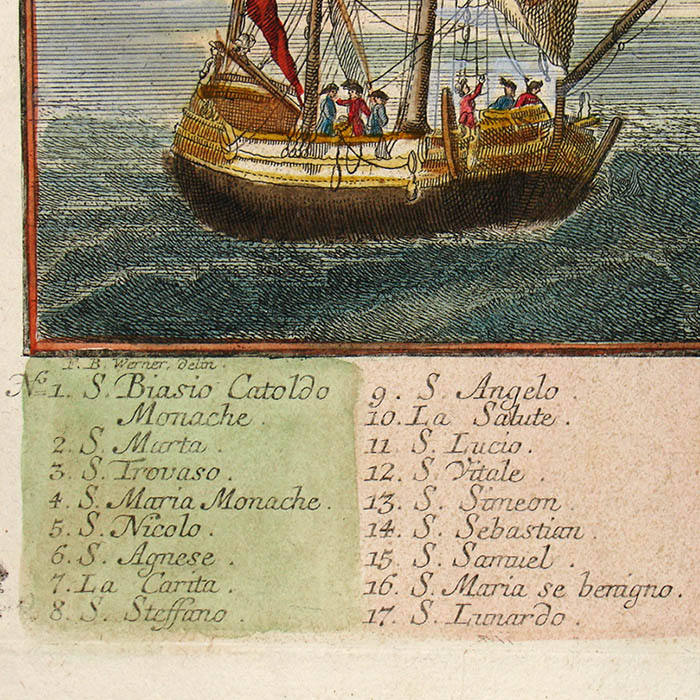 F. B. Werner, delin.
No. 1. S. Biasio Catoldo
Monache.
2. S. Marta.
3. S. Trovaso.
4. S. Maria Monache.
5. S. Nicolo.
6. S. Agnese.
7. La Carita.
8. S. Steffano.
9. S. Angelo.
10. La Salute.
11. S. Lucio.
12. S. Vitale.
13. S. Simeon.
14. S. Sebastian.
15. S. Samuel.
16. S. Maria se benigno.
17. S. Lunardo.